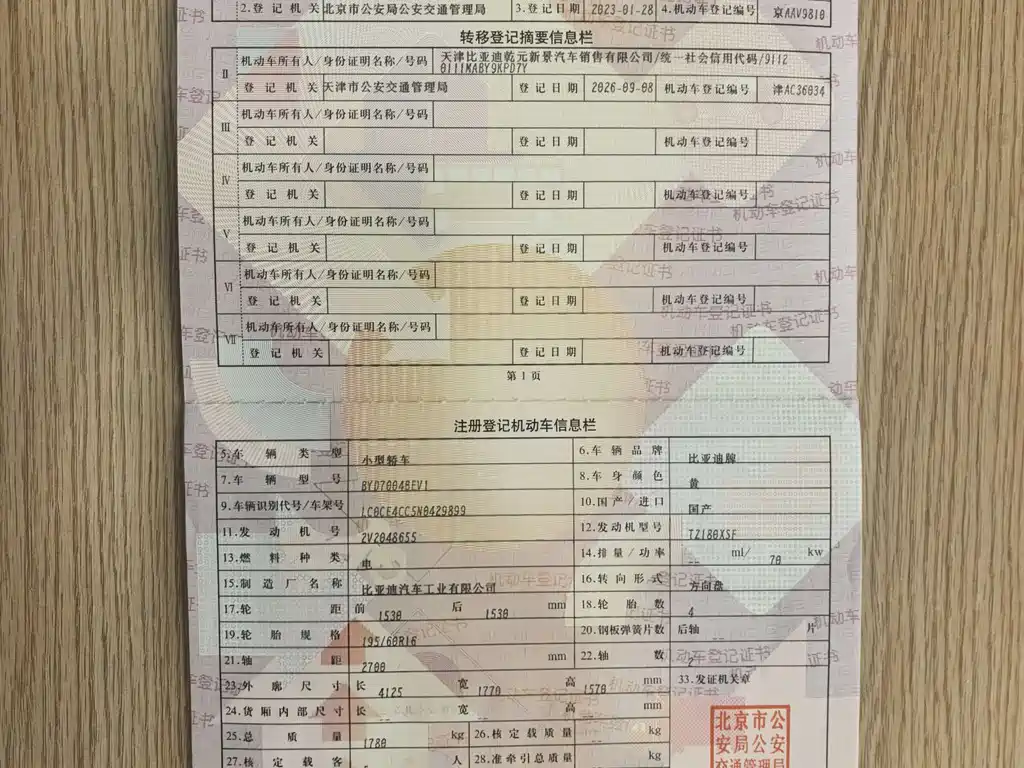 2.登记机关 北京市公安局公安交通管理局 3.登记日期 2023-01-28 4.机动车登记编号 京AAV9810
转移登记摘要信息栏
II 机动车所有人/身份证明名称/号码 天津比亚迪乾元新景汽车销售有限公司/统一社会信用代码/9112
0111MABY9KPD7Y
登记机关 天津市公安交通管理局 登记日期 2026-09-08 机动车登记编号 津AC36034
III 机动车所有人/身份证明名称/号码
登记机关 登记日期 机动车登记编号
IV 机动车所有人/身份证明名称/号码
登记机关 登记日期 机动车登记编号
V 机动车所有人/身份证明名称/号码
登记机关 登记日期 机动车登记编号
VI 机动车所有人/身份证明名称/号码
登记机关 登记日期 机动车登记编号
VII 机动车所有人/身份证明名称/号码
登记机关 登记日期 机动车登记编号
第1页
注册登记机动车信息栏
5.车辆类型 小型轿车 6.车辆品牌 比亚迪牌
7.车辆型号 BYD7004BEV1 8.车身颜色 黄
9.车辆识别代号/车架号 LC0CE4CC5N0429899 10.国产/进口 国产
11.发动机号 2V2048655 12.发动机型号 TZ180XSF
13.燃料种类 电 14.排量/功率 -- ml/ 70 kw
15.制造厂名称 比亚迪汽车工业有限公司 16.转向形式 方向盘
17.轮距 前 1530 后 1530 mm 18.轮胎数 4
19.轮胎规格 195/60R16 20.钢板弹簧片数 后轴 -- 片
21.轴距 2700 mm 22.轴数 2
23.外廓尺寸 长 4125 宽 1770 高 1570 mm 33.发证机关章
24.货厢内部尺寸 长 -- 宽 -- 高 -- mm
25.总质量 1780 kg 26.核定载质量 -- kg
27.核定载客 5 人 28.准牵引总质量 -- kg
北京市公
安局公安
交通管理局